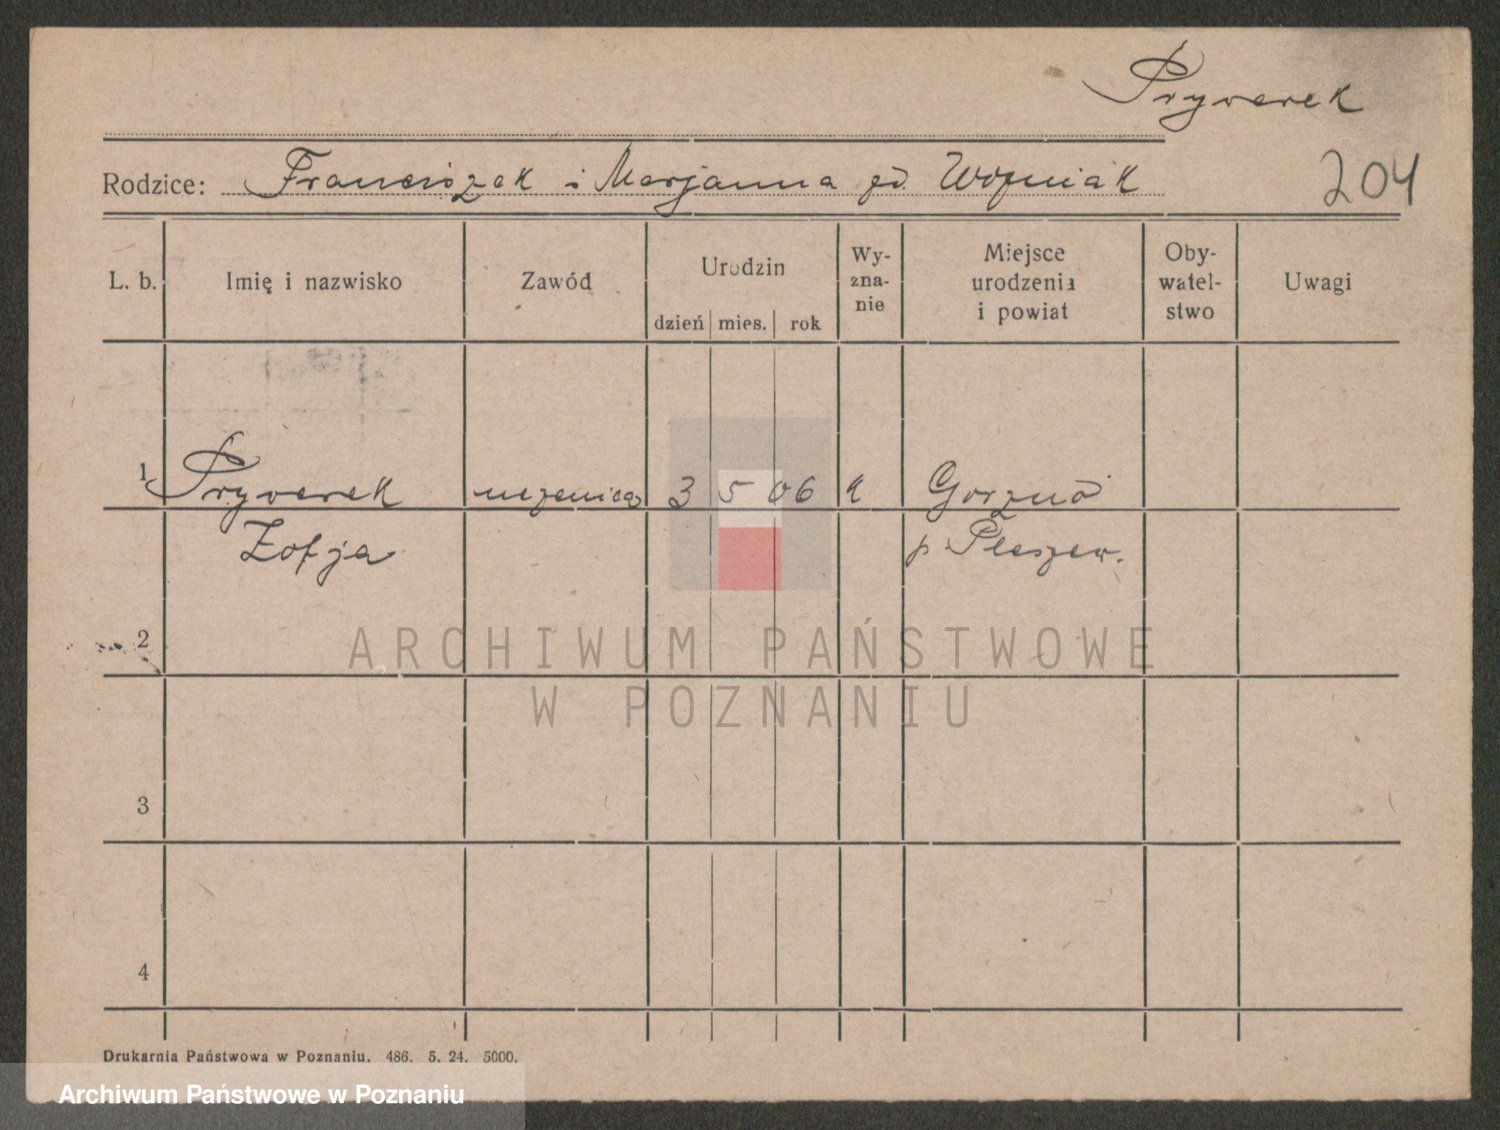 Pryverek
Rodzice: Franciszek i Marjanna zd. Woźniak
204
L. b. Imię i nazwisko Zawód Urodzin dzień mies. rok Wy-zna-nie Miejsce urodzenia i powiat Oby-watel-stwo Uwagi
1 Pryverek uczenica 3 5 06 k Gorzno
Zofja p Pleszew.
2
3
4
Drukarnia Państwowa w Poznaniu. 486. 5. 24. 5000.
ARCHIWUM PAŃSTWOWE
W POZNANIU
Archiwum Państwowe w Poznaniu